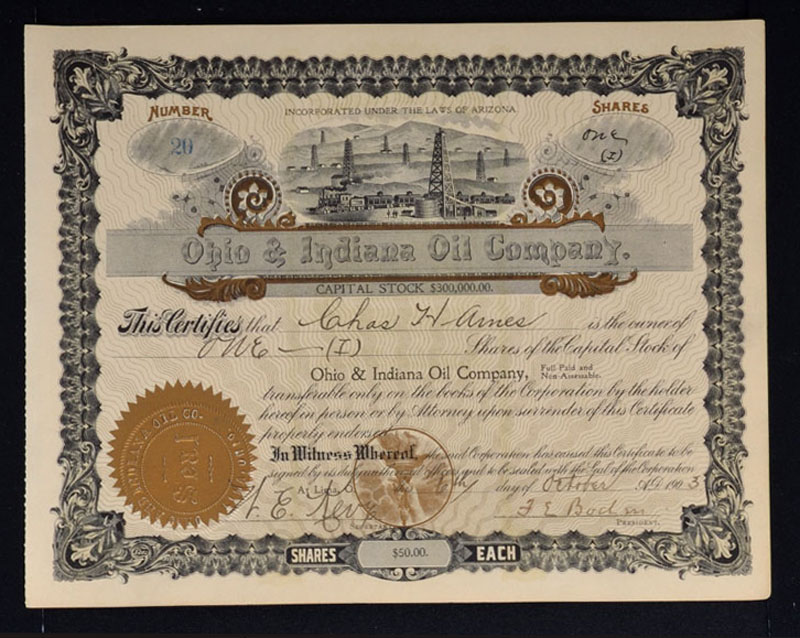 NUMBER
20
INCORPORATED UNDER THE LAWS OF ARIZONA
SHARES
one
(I)
Ohio & Indiana Oil Company.
CAPITAL STOCK $300,000.00.
This Certifies that Chas H Ames is the owner of
ONE — (I) Shares of the Capital Stock of
Ohio & Indiana Oil Company, Full Paid and Non-Assessable.
transferable only on the books of the Corporation by the holder
hereof in person or by Attorney upon surrender of this Certificate
properly endorsed.
In Witness Whereof, the said Corporation has caused this Certificate to be
signed by its duly authorized officers and to be sealed with the Seal of the Corporation
At Lima, O. 6th day of October A.D. 1903
SECRETARY. PRESIDENT.
INDIANA OIL CO.
SHARES $50.00. EACH